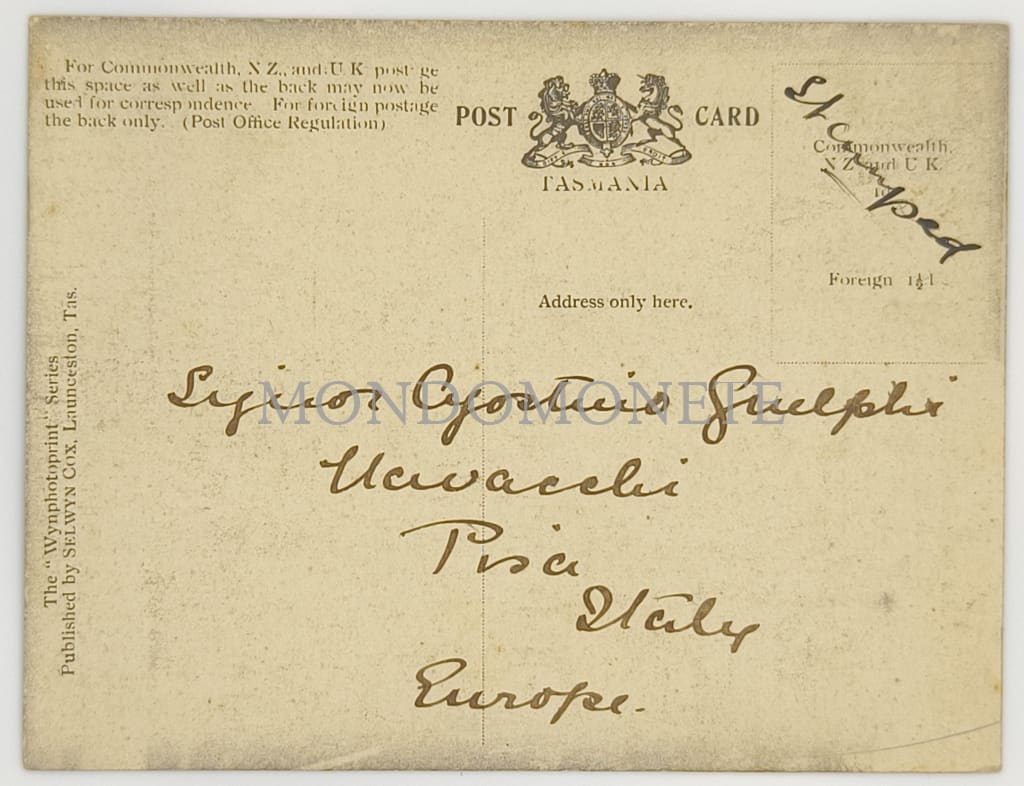 For Commonwealth, N Z., and U K post ge
this space as well as the back may now be
used for corresp ndence. For foreign postage
the back only. (Post Office Regulation)
POST CARD
TASMANIA
Stamped
Commonwealth,
N Z and U K.
Foreign 1½d
Address only here.
The "Wynphotoprint" Series
Published by SELWYN COX, Launceston, Tas.
MONDOMONETE
Signor Agostino Guelphi
Navacchi
Pisa
Italy
Europe.